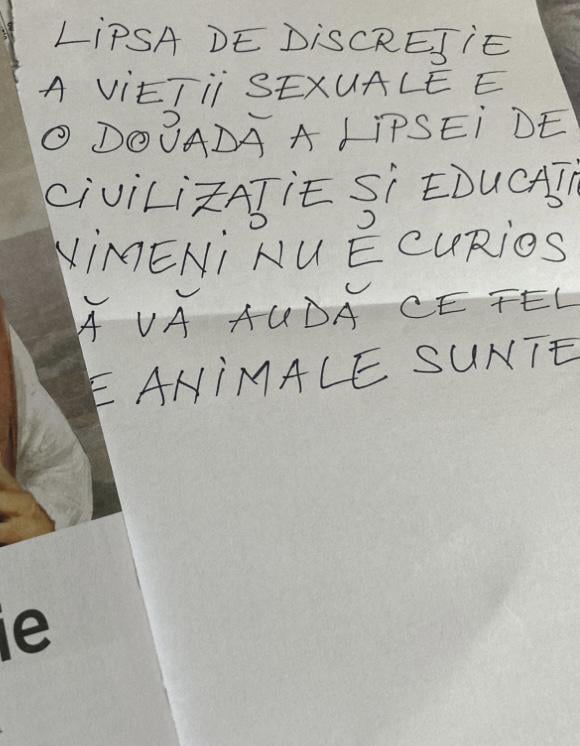 LIPSA DE DISCREȚIE
A VIEȚII SEXUALE E
O DOVADĂ A LIPSEI DE
CIVILIZAȚIE ȘI EDUCAȚI
NIMENI NU E CURIOS
Ă VĂ AUDĂ CE FEL
E ANIMALE SUNTE
ie